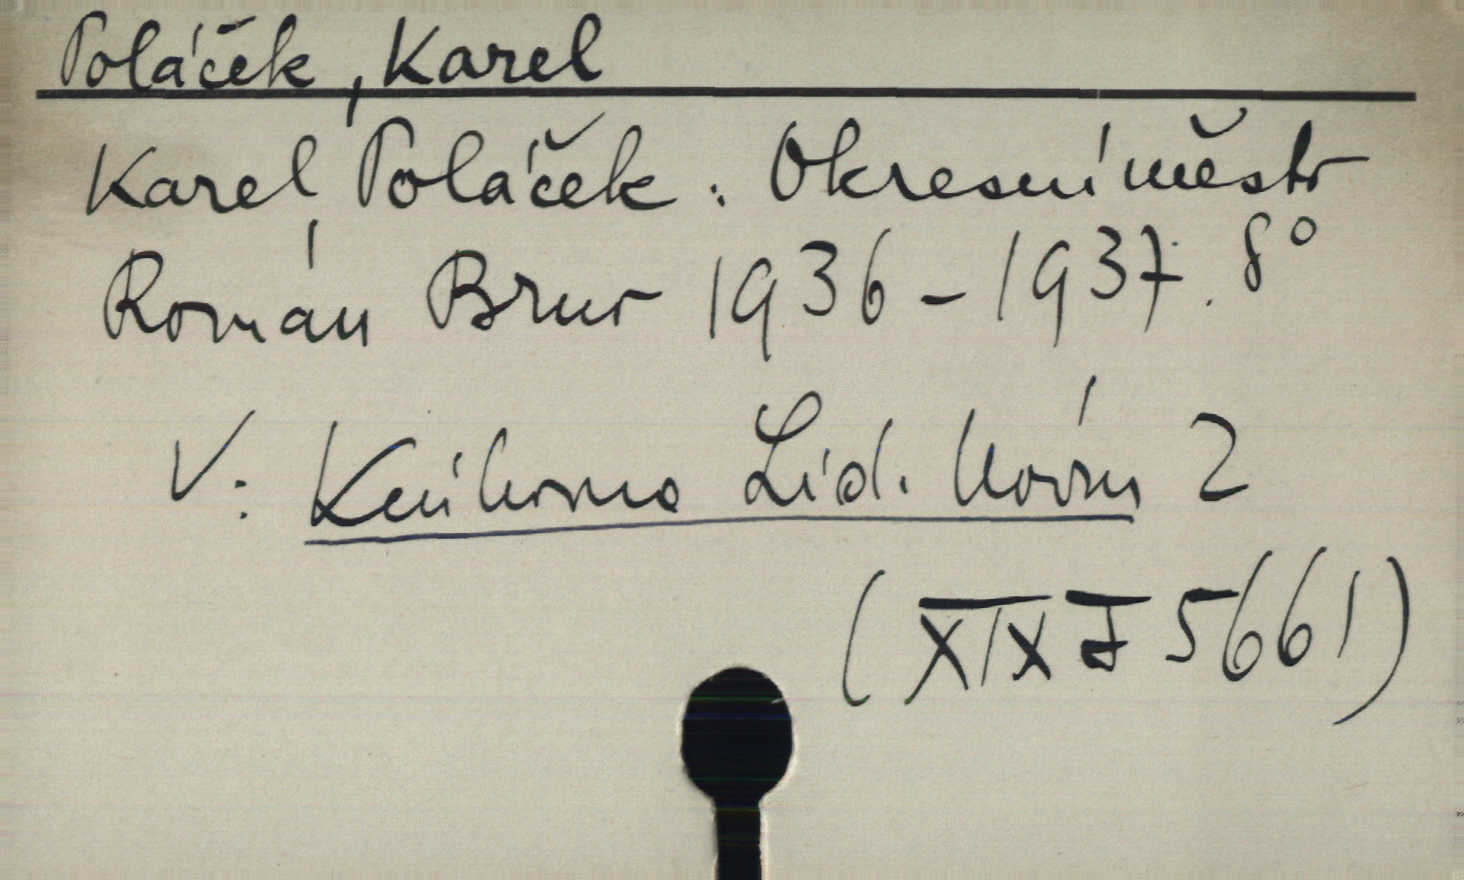 Poláček, Karel
Karel Poláček: Okresní město
Román Brno 1936-1937. 8°
V: Knihovna Lid. Novin 2
(XIX J 5661)